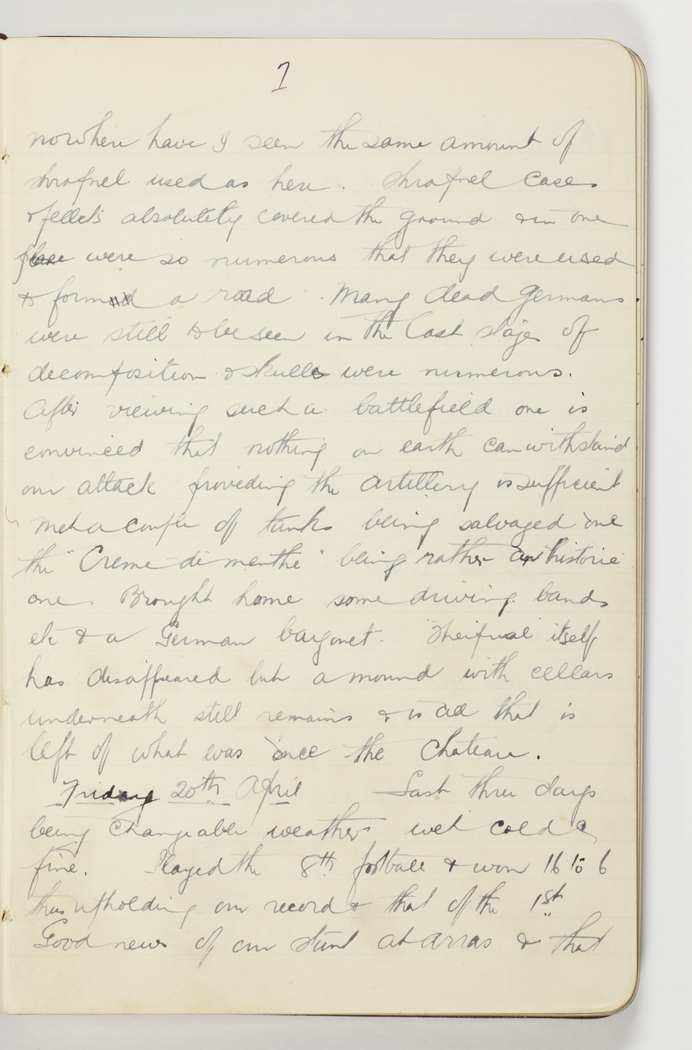 7
nowhere have I seen the same amount of
shrapnel used as here. Shrapnel cases
& pellets absolutely covered the ground & in one
place were so numerous that they were used
to form a road. Many dead Germans
were still to be seen in the last stages of
decomposition & skulls were numerous.
After viewing such a battlefield one is
convinced that nothing on earth can withstand
our attack providing the artillery is sufficient
Met a couple of tanks being salvaged one
the "Creme-de menthe" being rather an historic
one. Brought home some driving bands
etc & a German bayonet. "Thiepval" itself
has disappeared but a mound with cellars
underneath still remains & is all that is
left of what was once the Chateau.
Friday 20th April Last three days
being changeable weather wet cold &
fine. Played the 8th football & won 16 to 6
thus upholding our record & that of the 1st
Good news of our stunt at Arras & that